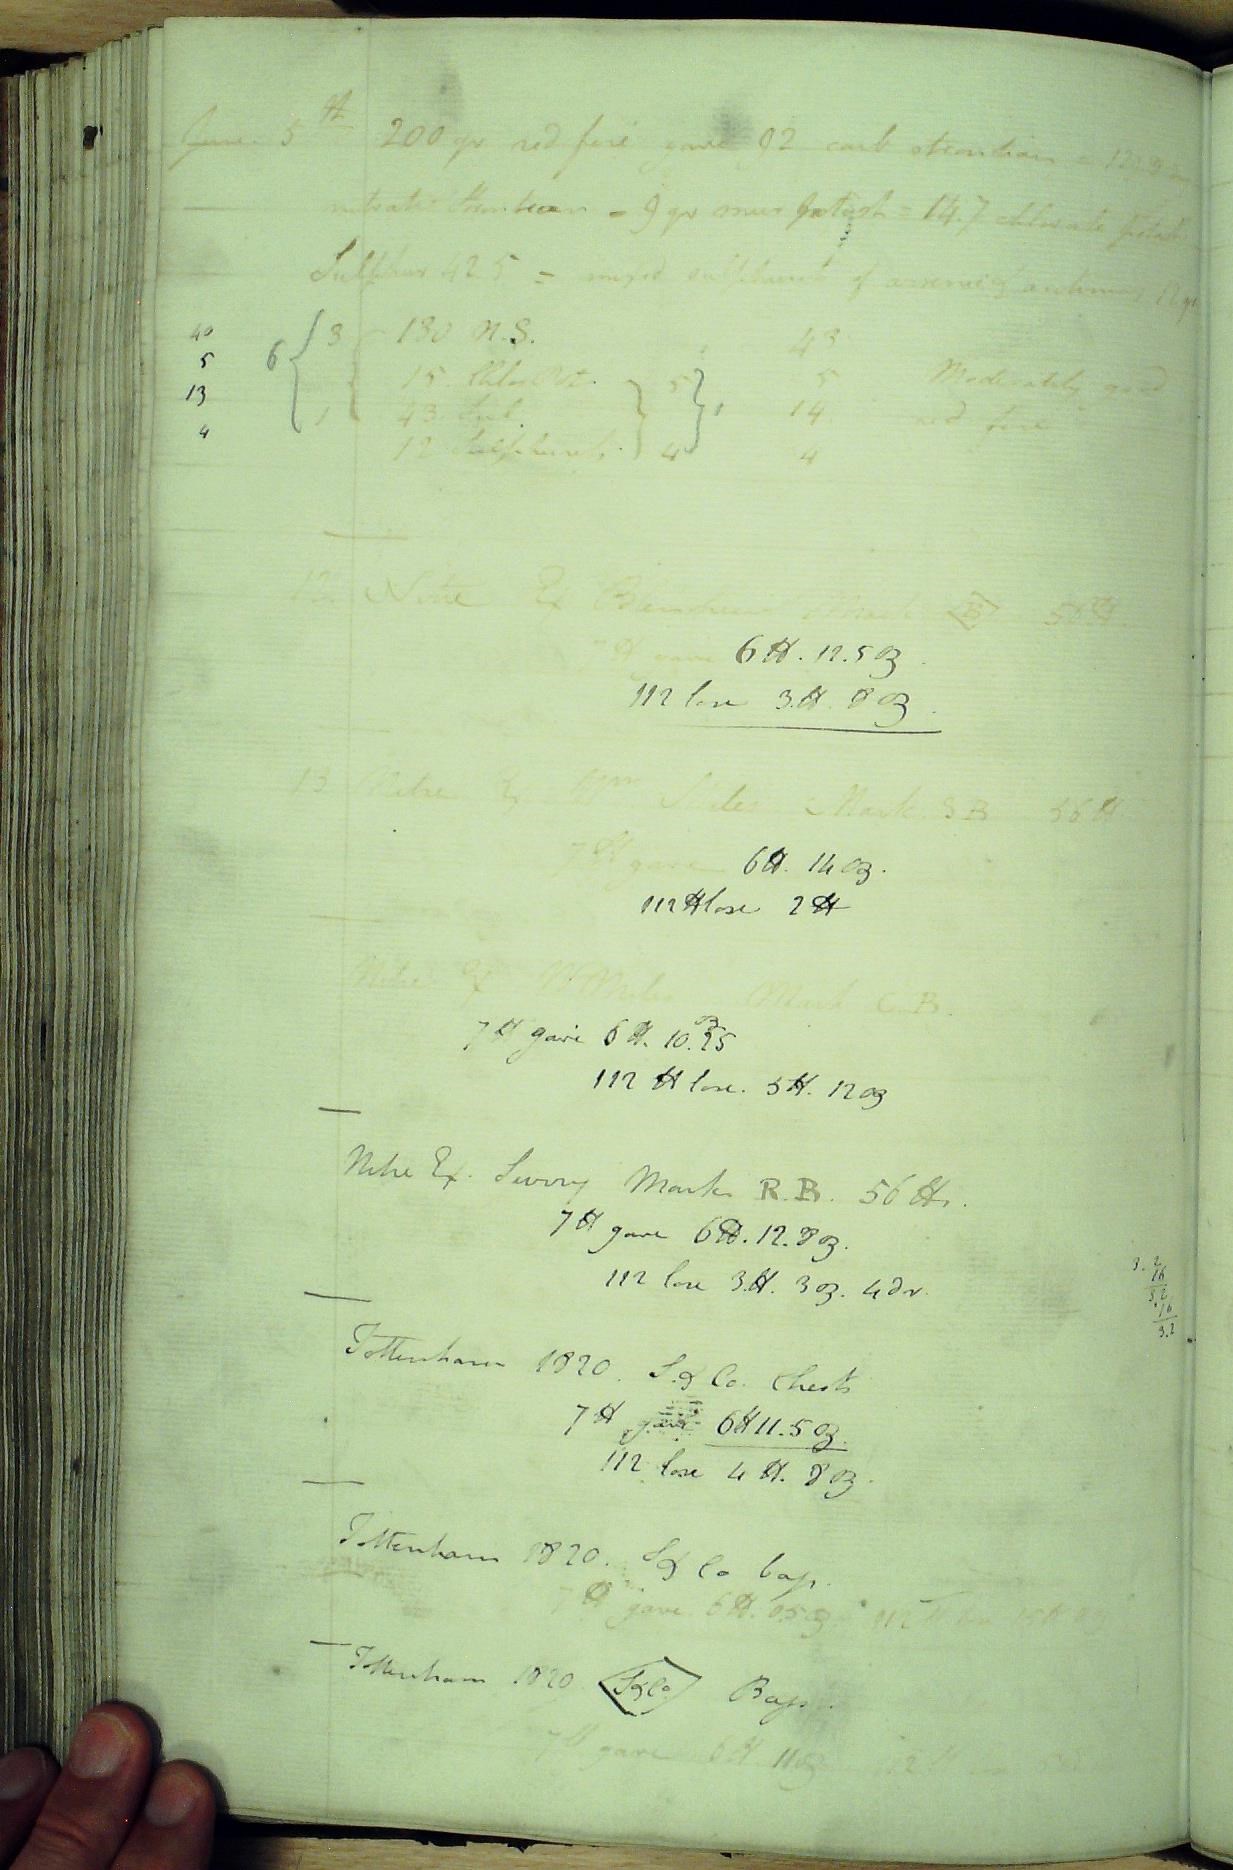 June 5th 200 gr red fire gave 92 carb strontian =
nitrate strontian = 9 gr mur potash = 14.7 chlorate potash
Sulphur 42 5 = mixed sulphurets of arsenic & antimony 12 gr
40 6 { 3 130 N.S. 43
5 15 Chlo Pot. 5 5 Moderately good
13 1 43 Sul. 1 14 red fire
4 12 Sulphurets 4 4
12 Nitre Ex Blenheim Mark B 56 ℔
7 ℔ gave 6 ℔. 12.5 oz.
112 lose 3 ℔. 8 oz.
13 Nitre Ex Wm Miles Mark S B 56 ℔
7 ℔ gave 6 ℔. 14 oz.
112 ℔ lose 2 ℔
Nitre Ex W Miles Mark C.B.
7 ℔ gave 6 ℔. 10.25 oz
112 ℔ lose. 5 ℔. 12 oz
Nitre Ex. Mark R.B. 56 ℔s.
7 ℔ gave 6 ℔. 12.8 oz.
112 lose 3 ℔. 3 oz. 4 dr.
3.2
16
3.2
16
3.2
Tottenham 1820. S. & Co. Chests
7 ℔ gave 6 ℔ 11.5 oz.
112 lose 4 ℔. 8 oz.
Tottenham 1820. S & Co bags.
7 ℔ gave 6 ℔. 0.5 oz 112 ℔ lose 15 ℔ 8 oz
Tottenham 1820 S & Co Bags.
7 ℔ gave 6 ℔ 11 oz 112 ℔